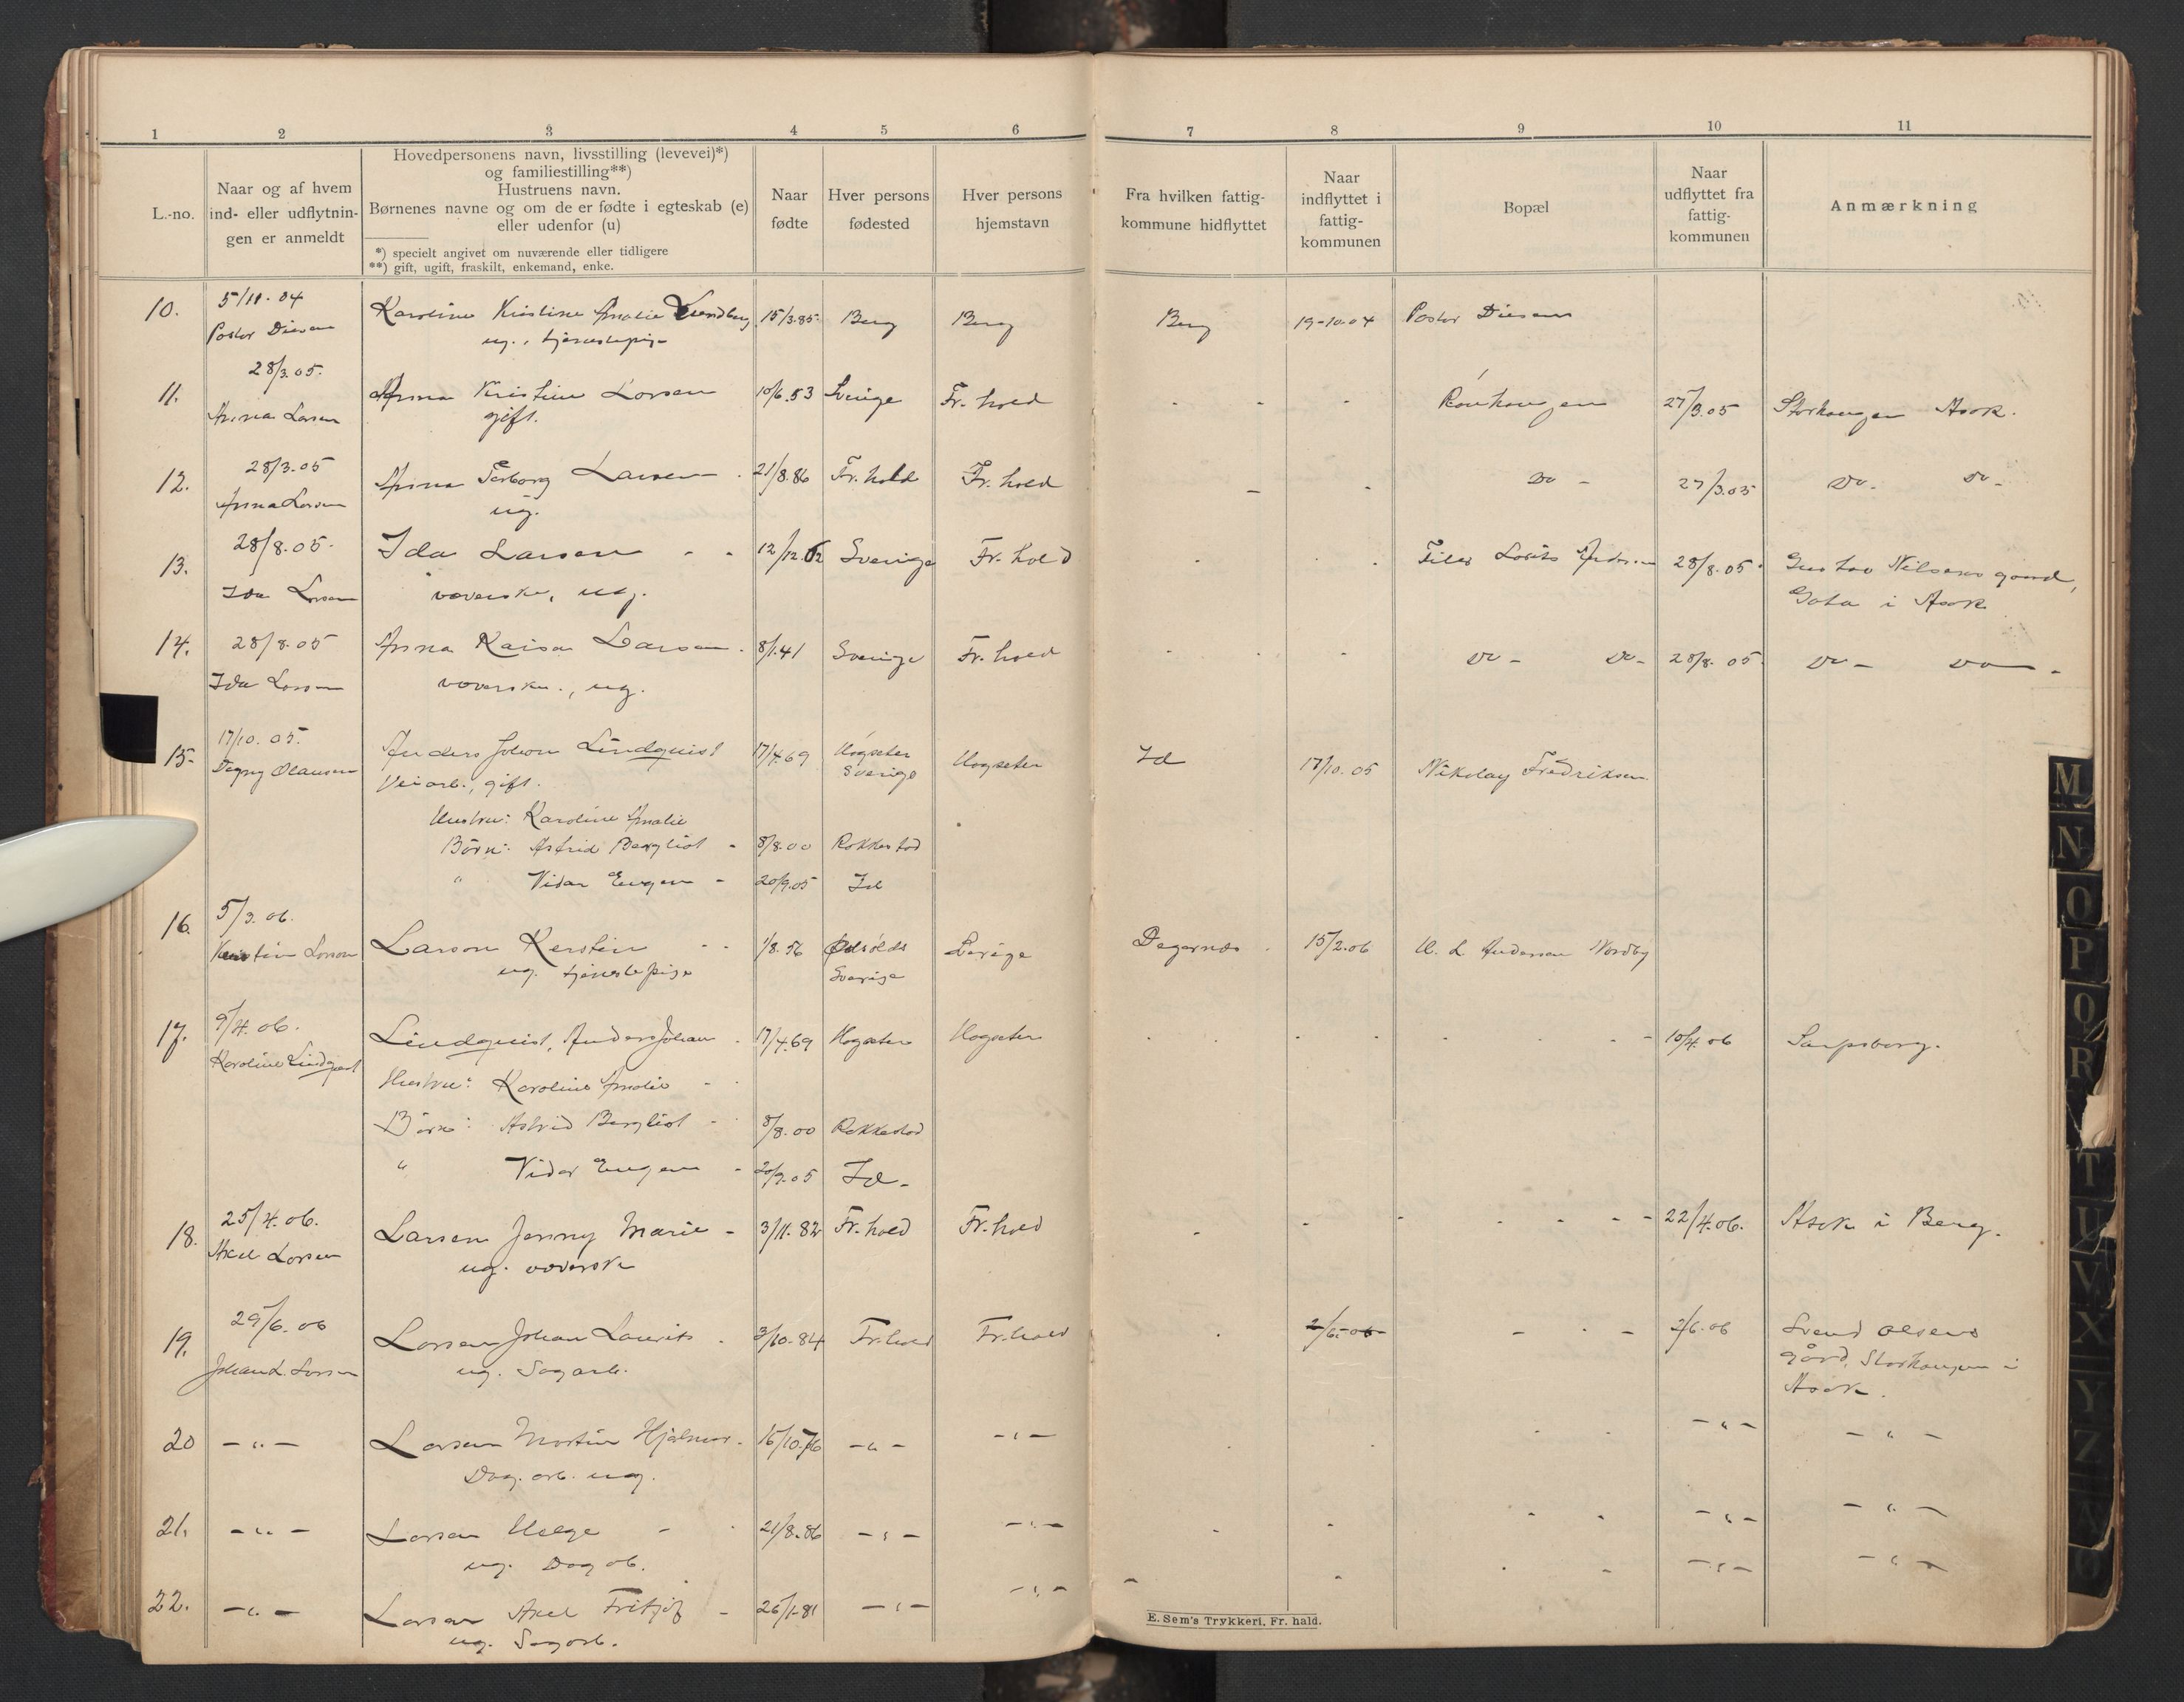 1 2 3 4 5 6 7 8 9 10 11
L.-no.
Naar og af hvem
ind- eller udflytnin-
gen er anmeldt
Hovedpersonens navn, livsstilling (levevei)*)
og familiestilling**)
Hustruens navn.
Børnenes navne og om de er fødte i egteskab (e)
eller udenfor (u)
*) specielt angivet om nuværende eller tidligere
**) gift, ugift, fraskilt, enkemand, enke.
Naar
fødte
Hver persons
fødested
Hver persons
hjemstavn
Fra hvilken fattig-
kommune hidflyttet
Naar
indflyttet i
fattig-
kommunen
Bopæl
Naar
udflyttet fra
fattig-
kommunen
Anmærkning
10. 5/11-04 Karoline Kristine Amalie Lundberg 15/3.85 Berg Berg Berg 19-10.04 Pastor Diesen
Pastor Diesen ug., tjenestepige
28/3.05.
11. Anna Kristine Larsen 10/6.53 Sverige Fr.hald - - - 27/3.05 Storhaugen Asak.
Anna Larsen gift.
28/3-05
12. Anna Larsen 21/8.86 Fr.hald Fr.hald - - Do - 27/3.05 Do. Do -
Anna Larsen ug.
28/8.05
13. Ida Larsen - - 12/12.62 Sverige Fr.hald - - Andersen 28/8.05 Gustav Nilsens gaard,
Ida Larsen væverske, ug. i Asak
14. 28/8.05 Anna Kaisa Larsen. 8/1.41 Sverige Fr.hald - - - Do - Do - 28/8.05 Do - Do -
Ida Larsen væverske., ug.
17/10.05.
15- Anders Johan Lindquist 17/4.69 Høgsæter Høgsæter Id 17/10.05 Nikolay Fredriksen
Dagny Olausen Veiarb., gift. Sverige
Hustru: Karoline Amalie
Børn: Astrid Bergliot - 8/8.00 Rokkestad
" Vidar Eugen - 20/9.05 Id
5/3.06.
16. Kerstin Larson Larson Kerstin - - 1/8.56 Sverige Degernæs 15/2.06 Andersen Nordby
ug. tjenestepige Sverige
9/4.06.
17. Lindquist, Anders Johan 17/4.69 Høgsæter Høgsæter 10/4.06 Sarpsborg.
Karoline Lindquist
Hustru: Karoline Amalie -
Børn: Astrid Bergliot - 8/8.00 Rokkestad
" Vidar Eugen - 20/9.05 Id -
25/4.06.
18. Larsen Jenny Marie - 3/11.82 Fr.hald Fr.hald - 22/4.06. Asak i Berg.
Axel Larsen ug. væverske
29/6.06
19. Larsen Johan Laurits 3/10-84 Fr.hald Fr.hald 2/6.06 - - 2/6.06 Svend Olsens
Johan L. Larsen ug. Sagarb. gård, Storhaugen i
Asak.
20 - " - Larsen Martin Hjalmar. 15/10.76 - " - - " - - " - - " -
Dag. arb. ug.
21. - " - Larsen Helge - 21/8.86 - " - - " - - " - - " -
ug. Dagarb.
22. - " - Larsen Axel Fritjof - 26/1.81 - " - - " - - " - - " -
ug. Sagarb.
E. Sem's Trykkeri, Fr. hald.
M
N
O
P
Q
R
T
U
V
X
Y
Z